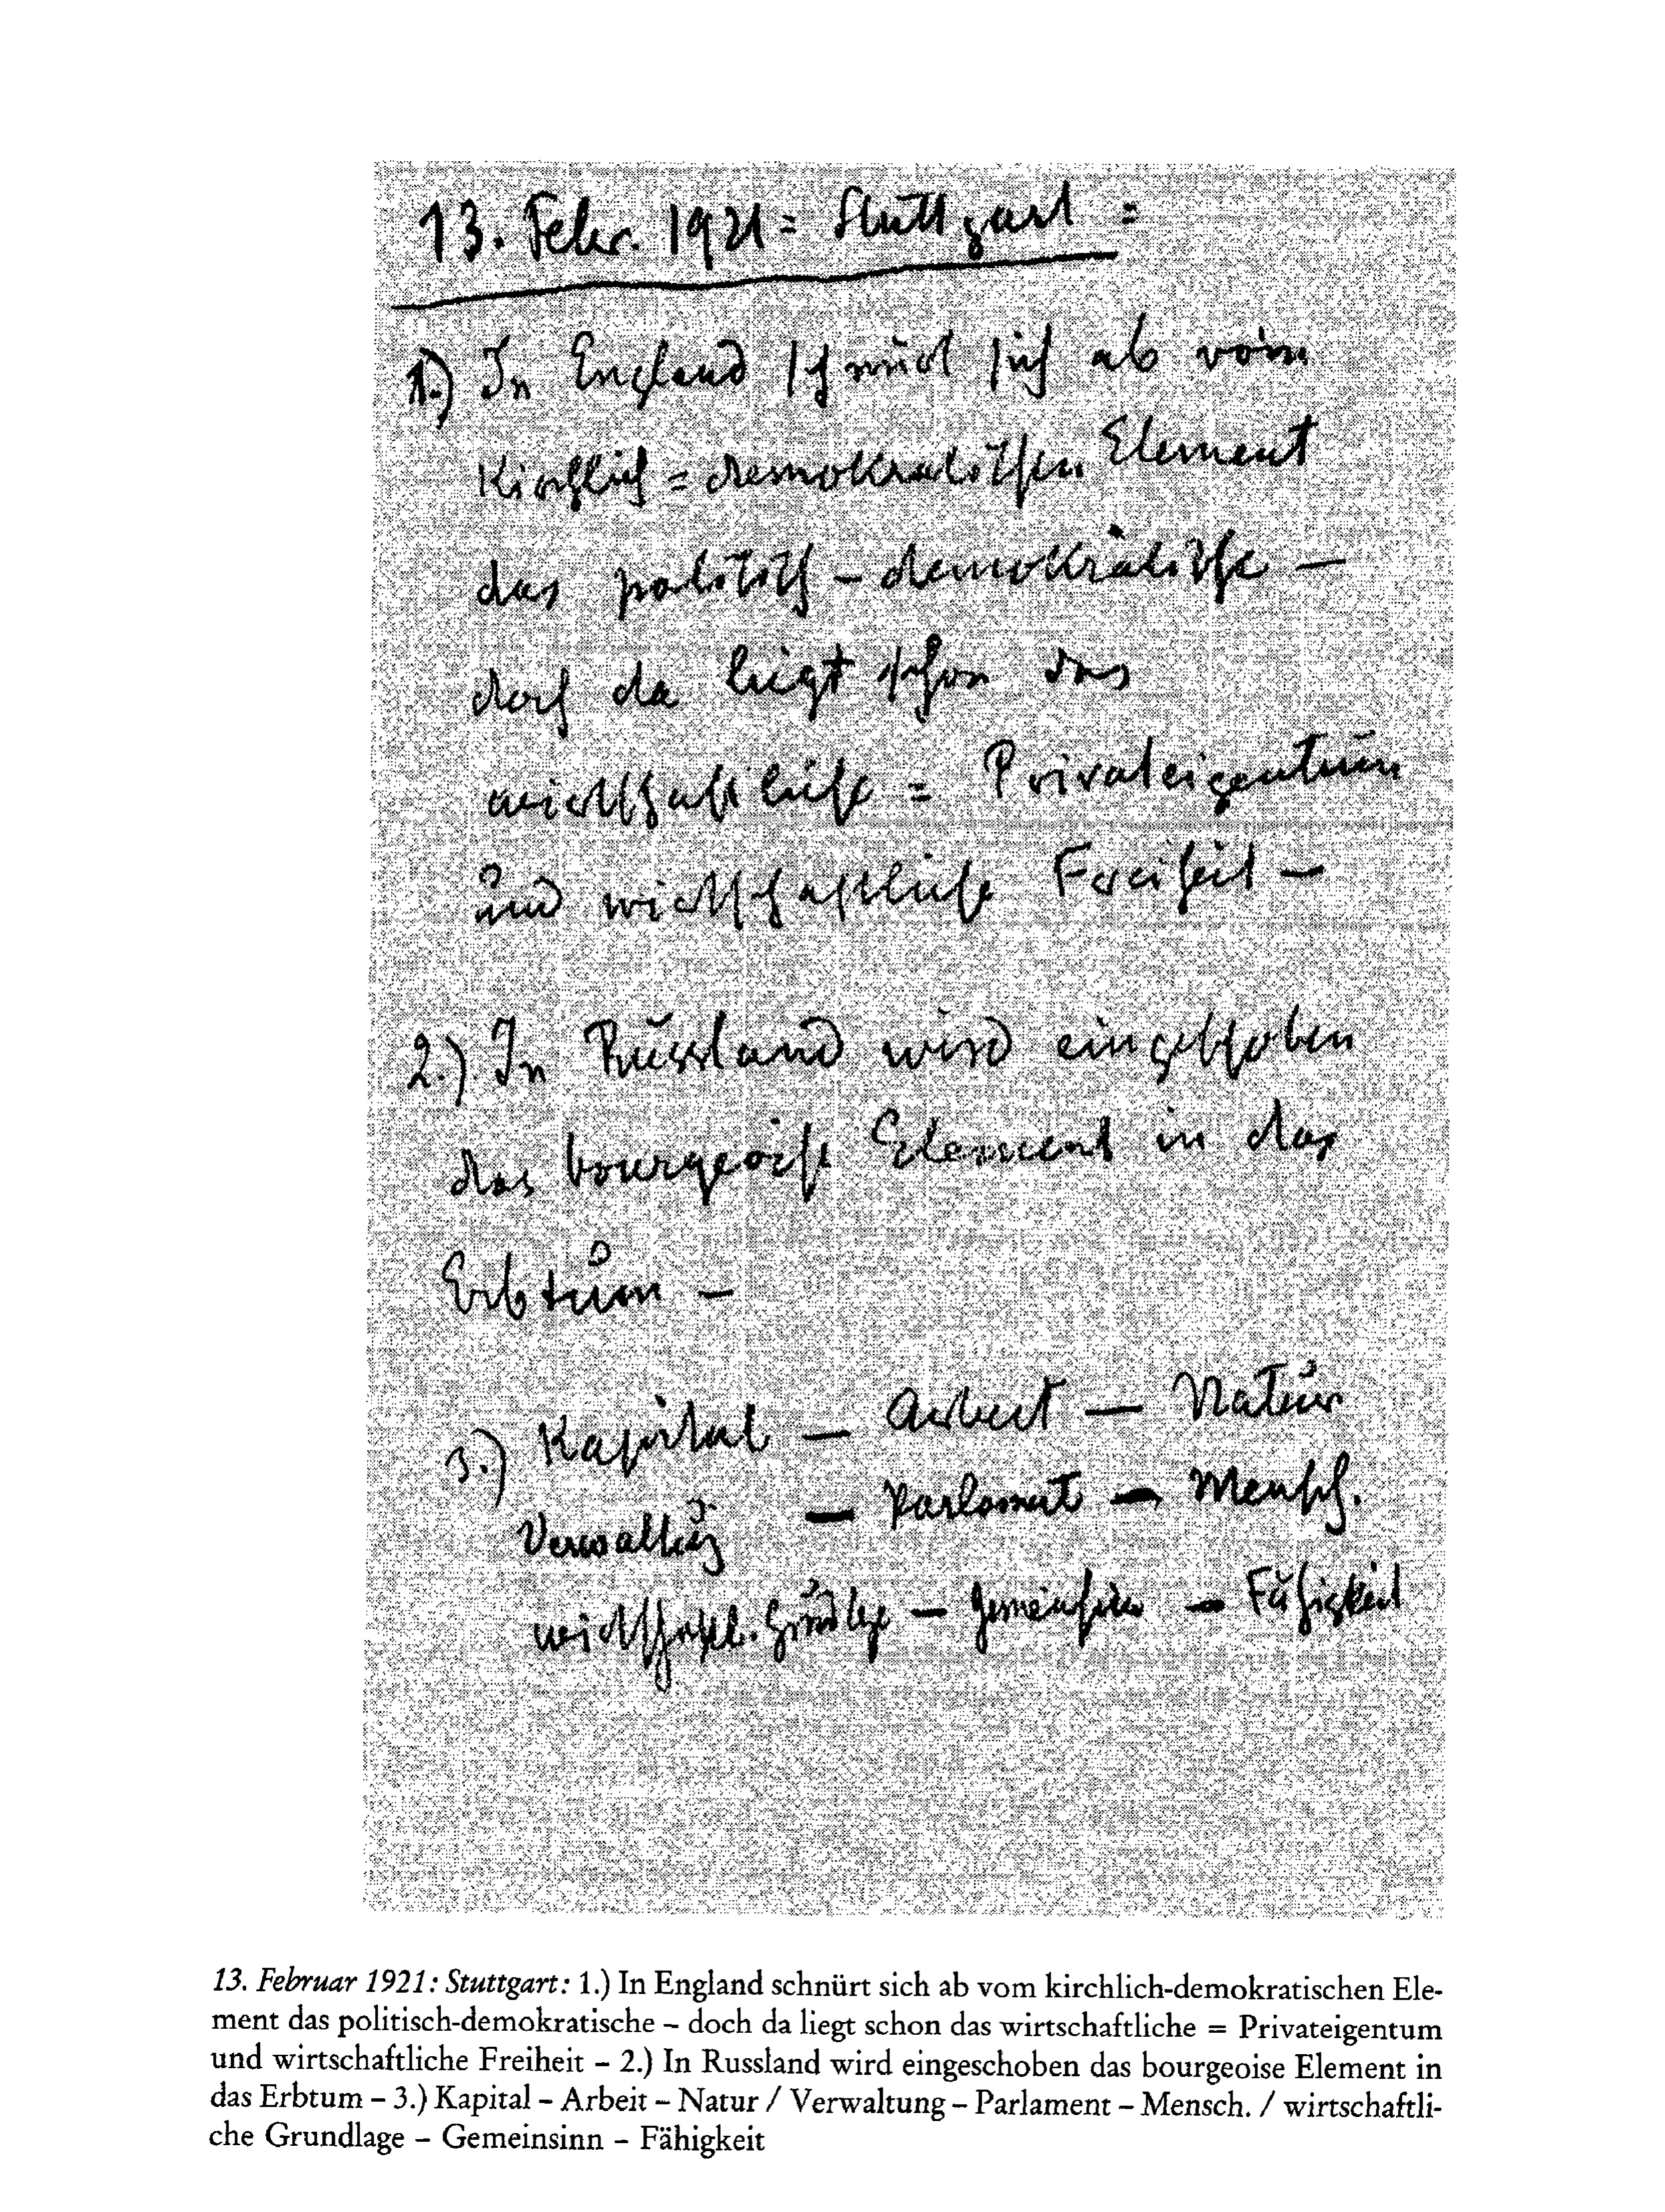 13. Febr. 1921 = Stuttgart =
1.) In England schnürt sich ab vom
Kirchlich = demokratischen Element
das politisch – demokratische –
doch da liegt schon das
wirtschaftliche = Privateigentum
und wirtschaftliche Freiheit –
2.) In Russland wird eingeschoben
das bourgeoise Element in das
Erbtum –
3.) Kapital – Arbeit – Natur
Verwaltung – Parlament – Mensch.
wirtschaftl. Grundlage – Gemeinsinn – Fähigkeit
13. Februar 1921: Stuttgart: 1.) In England schnürt sich ab vom kirchlich-demokratischen Ele-
ment das politisch-demokratische – doch da liegt schon das wirtschaftliche = Privateigentum
und wirtschaftliche Freiheit – 2.) In Russland wird eingeschoben das bourgeoise Element in
das Erbtum – 3.) Kapital – Arbeit – Natur / Verwaltung – Parlament – Mensch. / wirtschaftli-
che Grundlage – Gemeinsinn – Fähigkeit